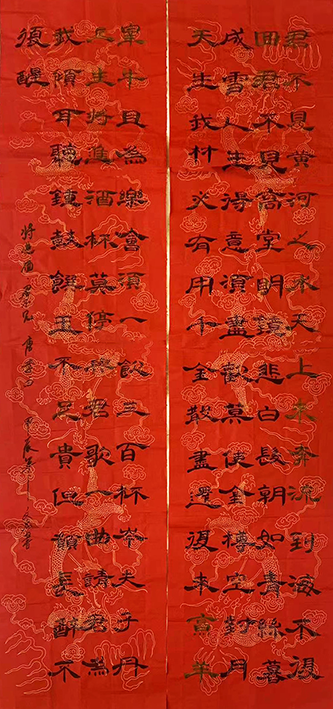 君不見黃河之水天上來奔流到海不復
回君不見高堂明鏡悲白髮朝如青絲暮
成雪人生得意須盡歡莫使金樽空對月
天生我材必有用千金散盡還復來烹羊
宰牛且為樂會須一飲三百杯岑夫子丹
丘生將進酒杯莫停與君歌一曲請君為
我傾耳聽鐘鼓饌玉不足貴但願長醉不
復醒
將進酒